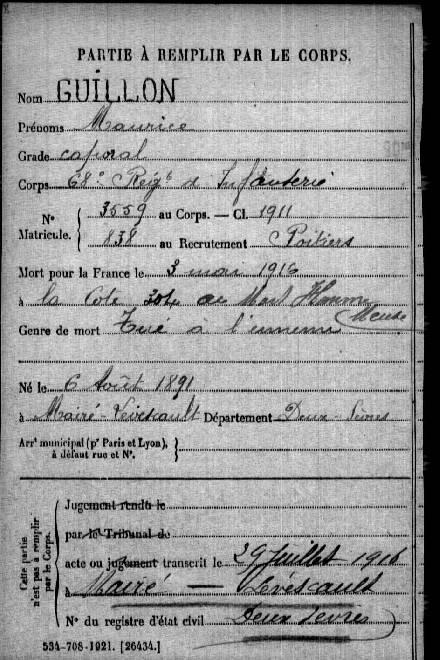 PARTIE À REMPLIR PAR LE CORPS.
Nom GUILLON
Prénoms Maurice
Grade caporal
Corps 68e Regt d'Infanterie
N° Matricule. { 3559 au Corps. — Cl. 1911
838 au Recrutement Poitiers
Mort pour la France le 3 mai 1916
à la Cote 304 Mort Homme
Meuse
Genre de mort Tué à l'ennemi
Né le 6 Août 1891
à Mairé-Levescault Département Deux-Sèvres
Arrt municipal (pr Paris et Lyon), }
à défaut rue et N°.
Cette partie n'est pas à remplir par le Corps. {
Jugement rendu le
par le Tribunal de
acte ou jugement transcrit le 29 Juillet 1916
à Mairé — Lévescault
N° du registre d'état civil Deux Sèvres
534-708-1921. [26434.]